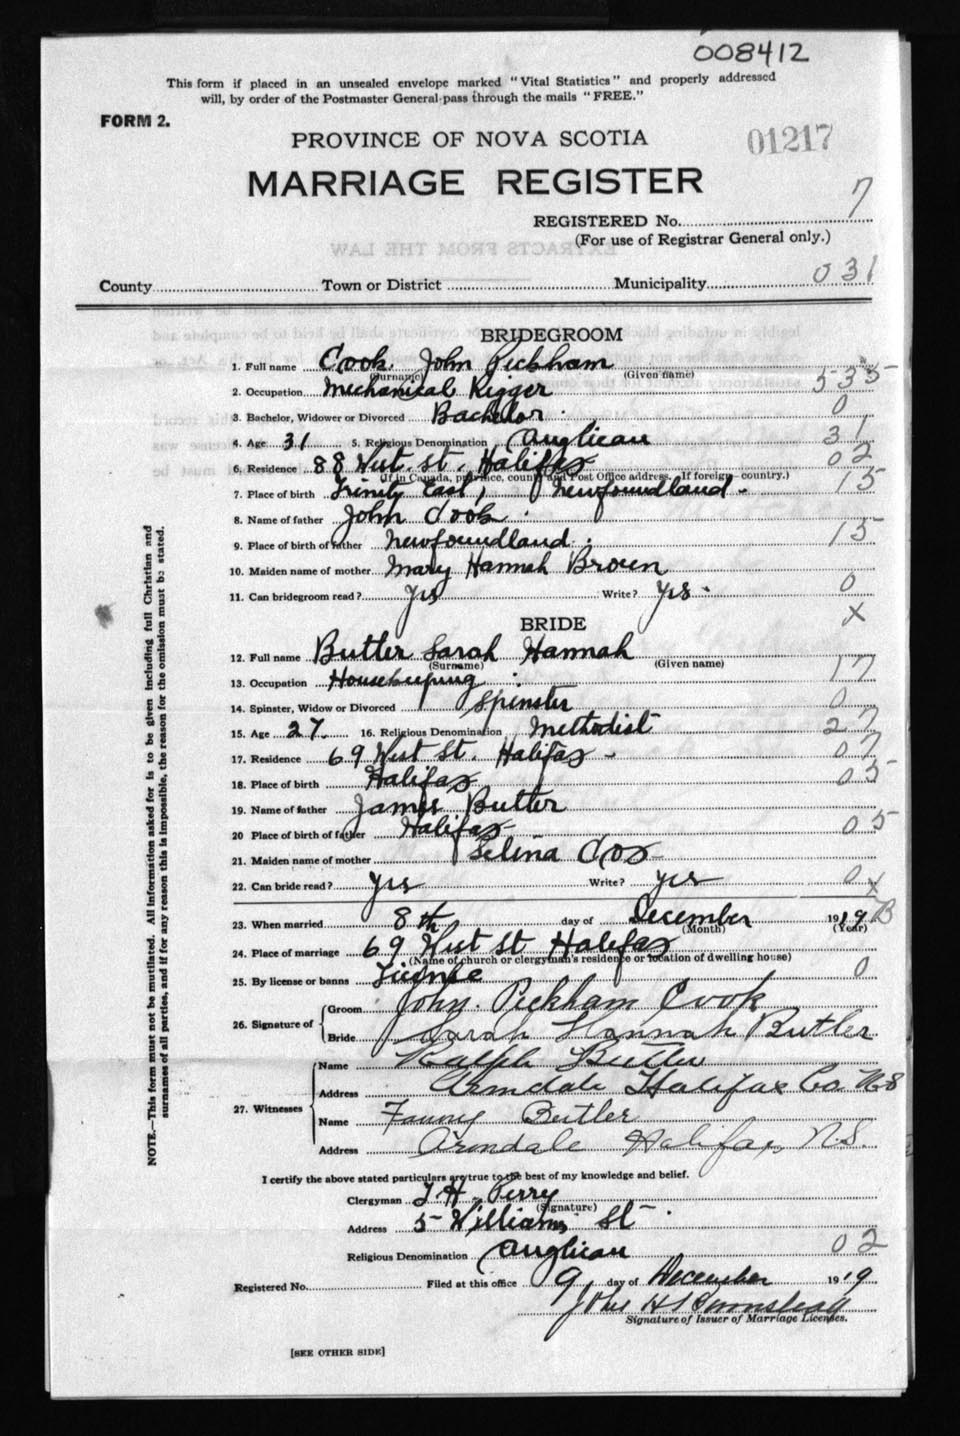 008412
This form if placed in an unsealed envelope marked "Vital Statistics" and properly addressed
will, by order of the Postmaster General pass through the mails "FREE."
FORM 2.
PROVINCE OF NOVA SCOTIA
01217
MARRIAGE REGISTER
REGISTERED No. 7
(For use of Registrar General only.)
EXTRACTS FROM THE LAW
County Town or District Municipality 031
BRIDEGROOM
1. Full name Cook John Peckham
(Surname) (Given name)
2. Occupation Mechanical Rigger 535
3. Bachelor, Widower or Divorced Bachelor 0
4. Age 31 5. Religious Denomination Anglican 31
6. Residence 88 West. St. Halifax 02
(If in Canada, province, county and Post Office address. If foreign country.)
7. Place of birth Trinity East, Newfoundland - 15
8. Name of father John Cook
9. Place of birth of father Newfoundland. 15
10. Maiden name of mother Mary Hannah Brown
11. Can bridegroom read? Yes Write? Yes 0
X
BRIDE
12. Full name Butler Sarah Hannah
(Surname) (Given name)
13. Occupation Housekeeping 17
14. Spinster, Widow or Divorced Spinster 0
15. Age 27. 16. Religious Denomination Methodist 27
17. Residence 69 West St. Halifax - 07
18. Place of birth Halifax 05
19. Name of father James Butler
20 Place of birth of father Halifax 05
21. Maiden name of mother Selina Cox
22. Can bride read? Yes Write? Yes 0 X
23. When married 8th day of December 1919 B
(Month) (Year)
24. Place of marriage 69 West St Halifax
(Name of church or clergyman's residence or location of dwelling house)
25. By license or banns License 0
26. Signature of Groom John. Peckham Cook
Bride Sarah Hannah Butler
27. Witnesses
Name Ralph Butler
Address Armdale Halifax Co. N.S
Name Fanny Butler
Address Armdale Halifax, N.S.
I certify the above stated particulars are true to the best of my knowledge and belief.
Clergyman T. H. Perry
(Signature)
Address 5 Williams St
Religious Denomination Anglican 02
Registered No. Filed at this office 9 day of December 1919
John H
Signature of Issuer of Marriage Licenses.
[SEE OTHER SIDE]
NOTE.—This form must not be mutilated. All information asked for is to be given including full Christian and
surnames of all parties, and if for any reason this is impossible, the reason for the omission must be stated.